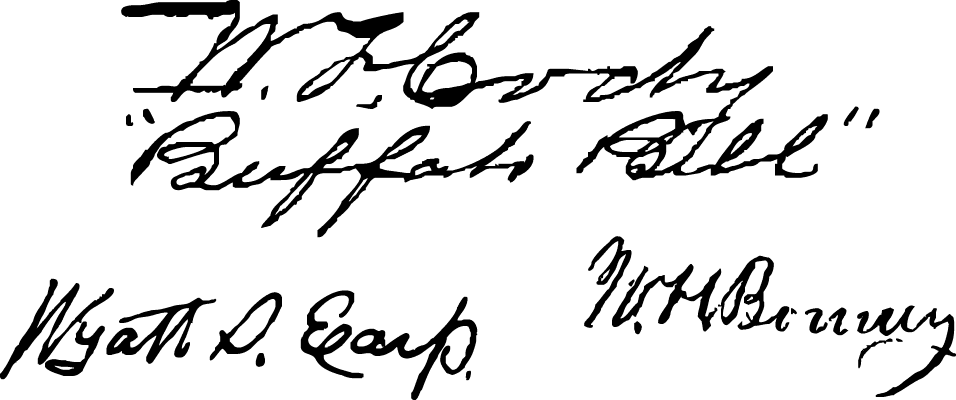 W. F. Cody
"Buffalo Bill"
Wyatt S. Earp.
W. H. Bonney